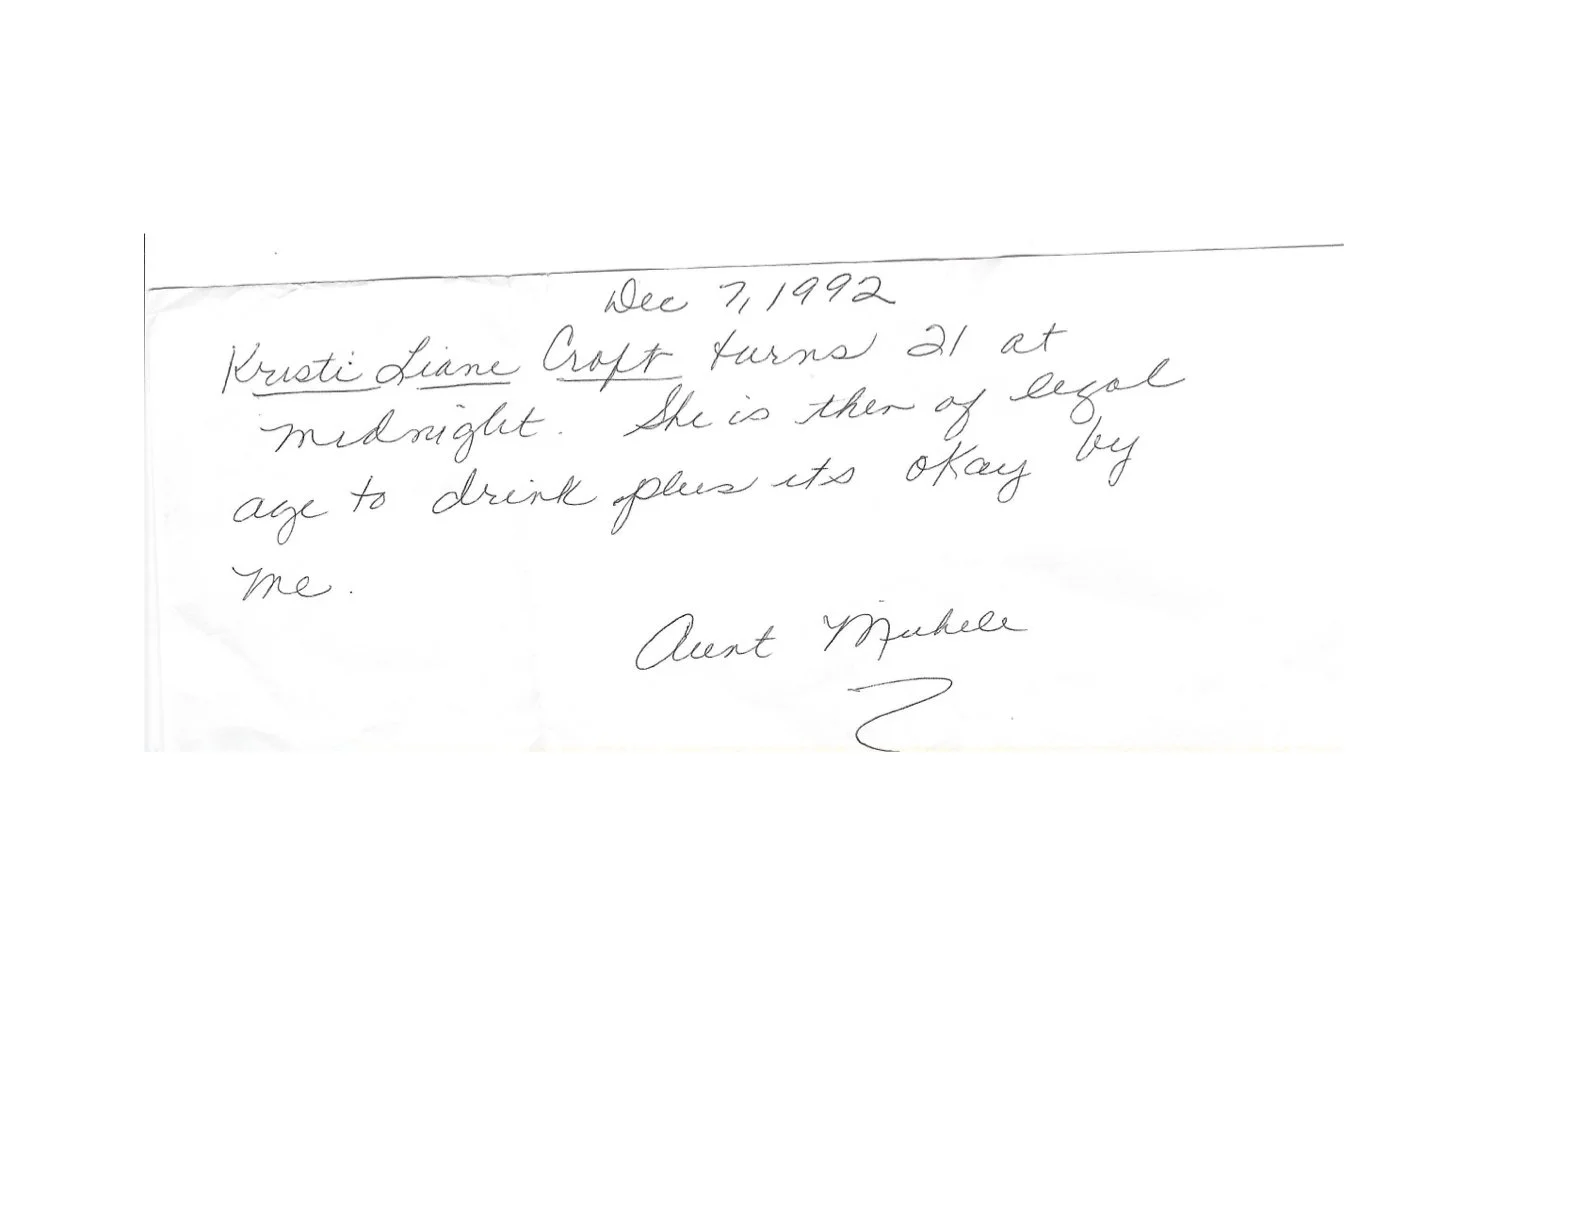 Dec 7, 1992
Kristi Liane Croft turns 21 at
midnight. She is then of legal
age to drink plus its okay by
me.
Aunt Michele